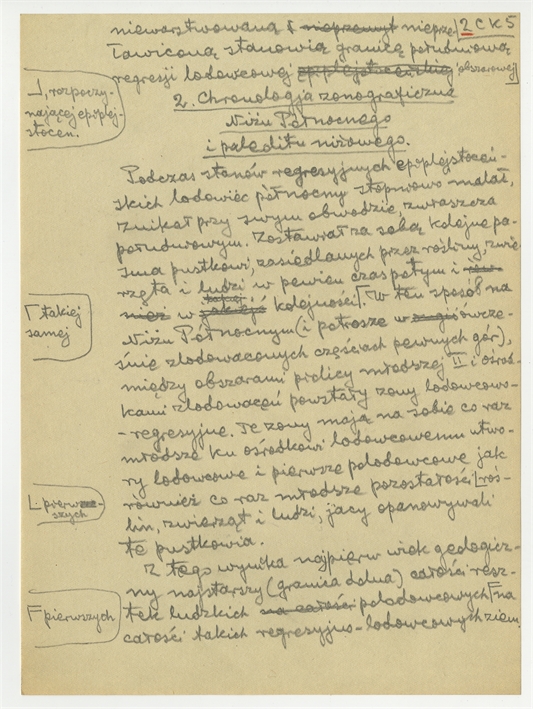 niewarstwowaną i nieprze
2 C K 5
ławiconą stanowią granicę południową
regresji lodowcowej epiplejstoceńskiej obszarowej
⅃, rozpoczy-
nającej epiplej-
stocen.
2. Chronologja zonograficzna
Niżu Północnego
i paleolitu niżowego.
Podczas stanów regresyjnych epiplejstoceń-
skich lodowiec północny stopniowo malał,
znikał przy swym obwodzie, zwłaszcza
południowym. Zostawiał za sobą kolejne pa-
sma pustkowi, zasiedlanych przez rośliny, zwie
rzęta i ludzi w pewien czas potym i
w kolejności. W ten sposób na
Γ takiej
samej
Niżu Północnym (i potrosze w ówcze-
śnie zlodowaconych częściach pewnych gór),
między obszarami prolicy młodszej II i ośrod
kami zlodowaceń powstały zony lodowcowo-
-regresyjne. Te zony mają na sobie co raz
młodsze ku ośrodkowi lodowcowemu utwo-
ry lodowcowe i pierwsze polodowcowe jak
również co raz młodsze pozostałości roś-
L pierw-
szych
lin, zwierząt i ludzi, jacy opanowywali
te pustkowia.
Z tego wynika najpierw wiek geologicz-
ny najstarszy (granica dolna) całości resz-
tek ludzkich na całości polodowcowych na
F pierwszych
całości takich regresyjno-lodowcowych ziem.